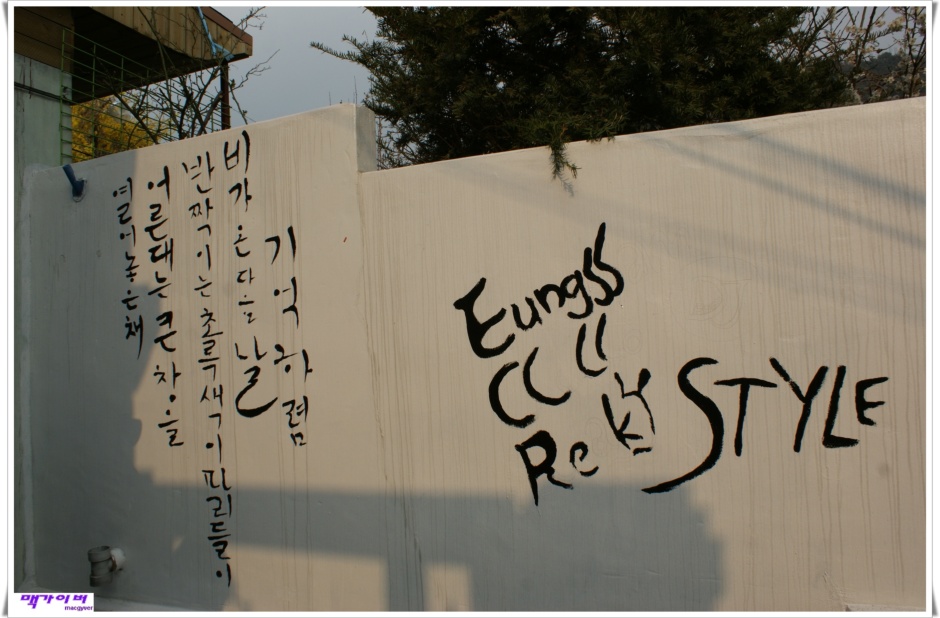 기억 하렴
비가 온 다음 날
반짝이는 초록색 이파리들이
어른대는 큰 창을
열어놓은 채
Eungss
STYLE
맥가이버
macgyver